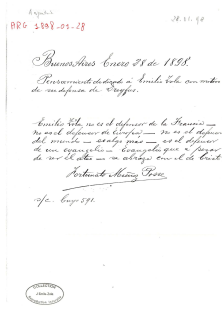 28.01.98
ARG 1898-01-28
Buenos Aires Enero 28 de 1898.
Pensamiento dedicado á Emilio Zola con motivo
de su defensa de Dreyfus.
Emilio Zola no es el defensor de la Francia —
no es el defensor de Europa — no es el defensor
del mundo — es algo mas — es el defensor
de un evangelio — Evangelio que á pesar
de ser el otro — se abraza con el de Cristo
Fortunato Muñoz
s/c. Cuyo 591.